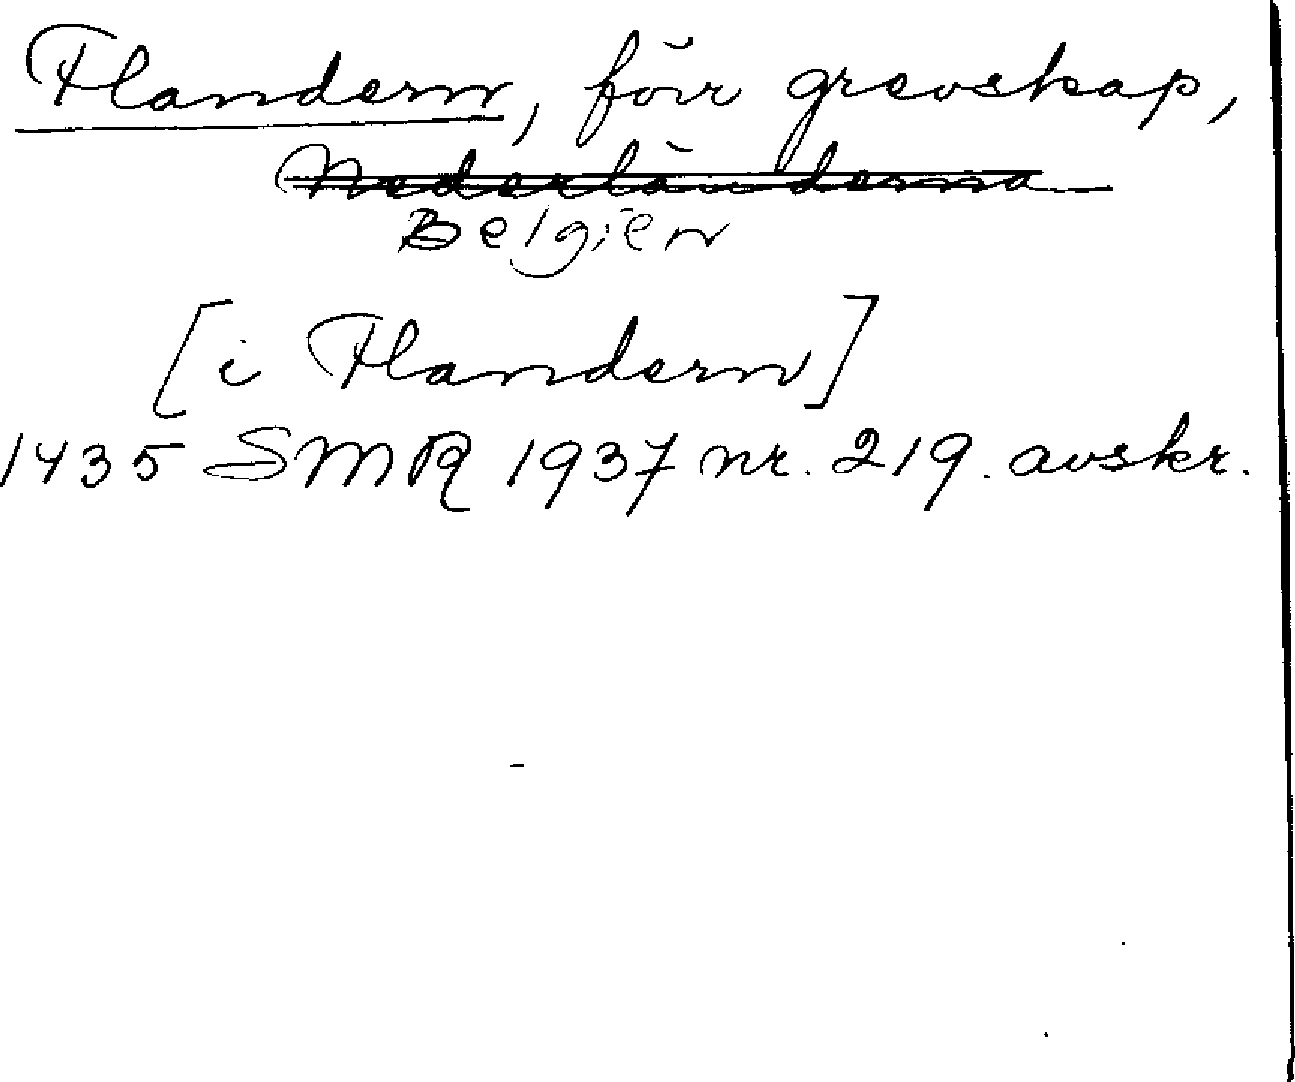 Flandern, förr grevskap,
Nederländerna
Belgien
[i Flandern]
1435 SMR 1937 nr. 219. avskr.